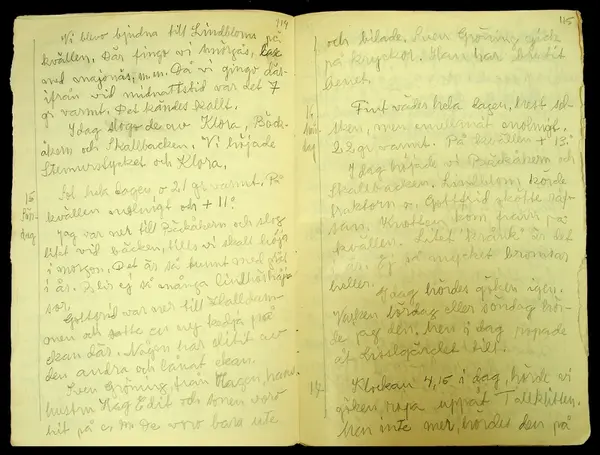 114
Vi blevo bjudna till Lindbloms på
kvällen. Där fingo vi smörgås, lax
med majonäs, m.m. Då vi gingo där-
ifrån vid midnattstid var det 7
gr varmt. Det kändes kallt.
I dag slogo de av Klora, Bäck-
åkern och Skallbacken. Vi höjade
Stemurstycket och Klora.
15
Sön-
dag
Sol hela dagen o 21 gr varmt. På
kvällen molnigt och + 11°.
Jag var ner till Bäckåkern och slog
litet vid bäcken, tills vi skall höja
i morgon. Det är så tunnt med gräs
i år. Blev ej så många
sor.
Gottfrid var ner till
och satte en ny kedja på
ekan där. Någon har slitit av
den andra och lånat ekan.
Sven Gröning från Hagen, hans
hustru Hag Edit och sonen voro
hit på e.m. De voro bara ute
115
och bilade. Sven Gröning gick
på kryckor. Han har brutit
benet.
16
Mån-
dag
Fint väder hela dagen, mest sol-
sken, men emellanåt molnigt.
22 gr varmt. På kvällen + 13.°
I dag höjade vi Bäckåkern och
Skallbacken. Lindblom körde
traktorn o. Gottfrid skötte räf-
san. Knotten kom fram på
kvällen. Litet "kräk" är det
i år. Ej så mycket bromsar
heller.
I dag hördes göken igen.
Varken lördag eller söndag hör-
de jag den. Men i dag ropade
åt till.
17
Klockan 4,15 i dag, hörde vi
göken, ropa uppåt Tallklitten.
Men inte mer, hördes den på